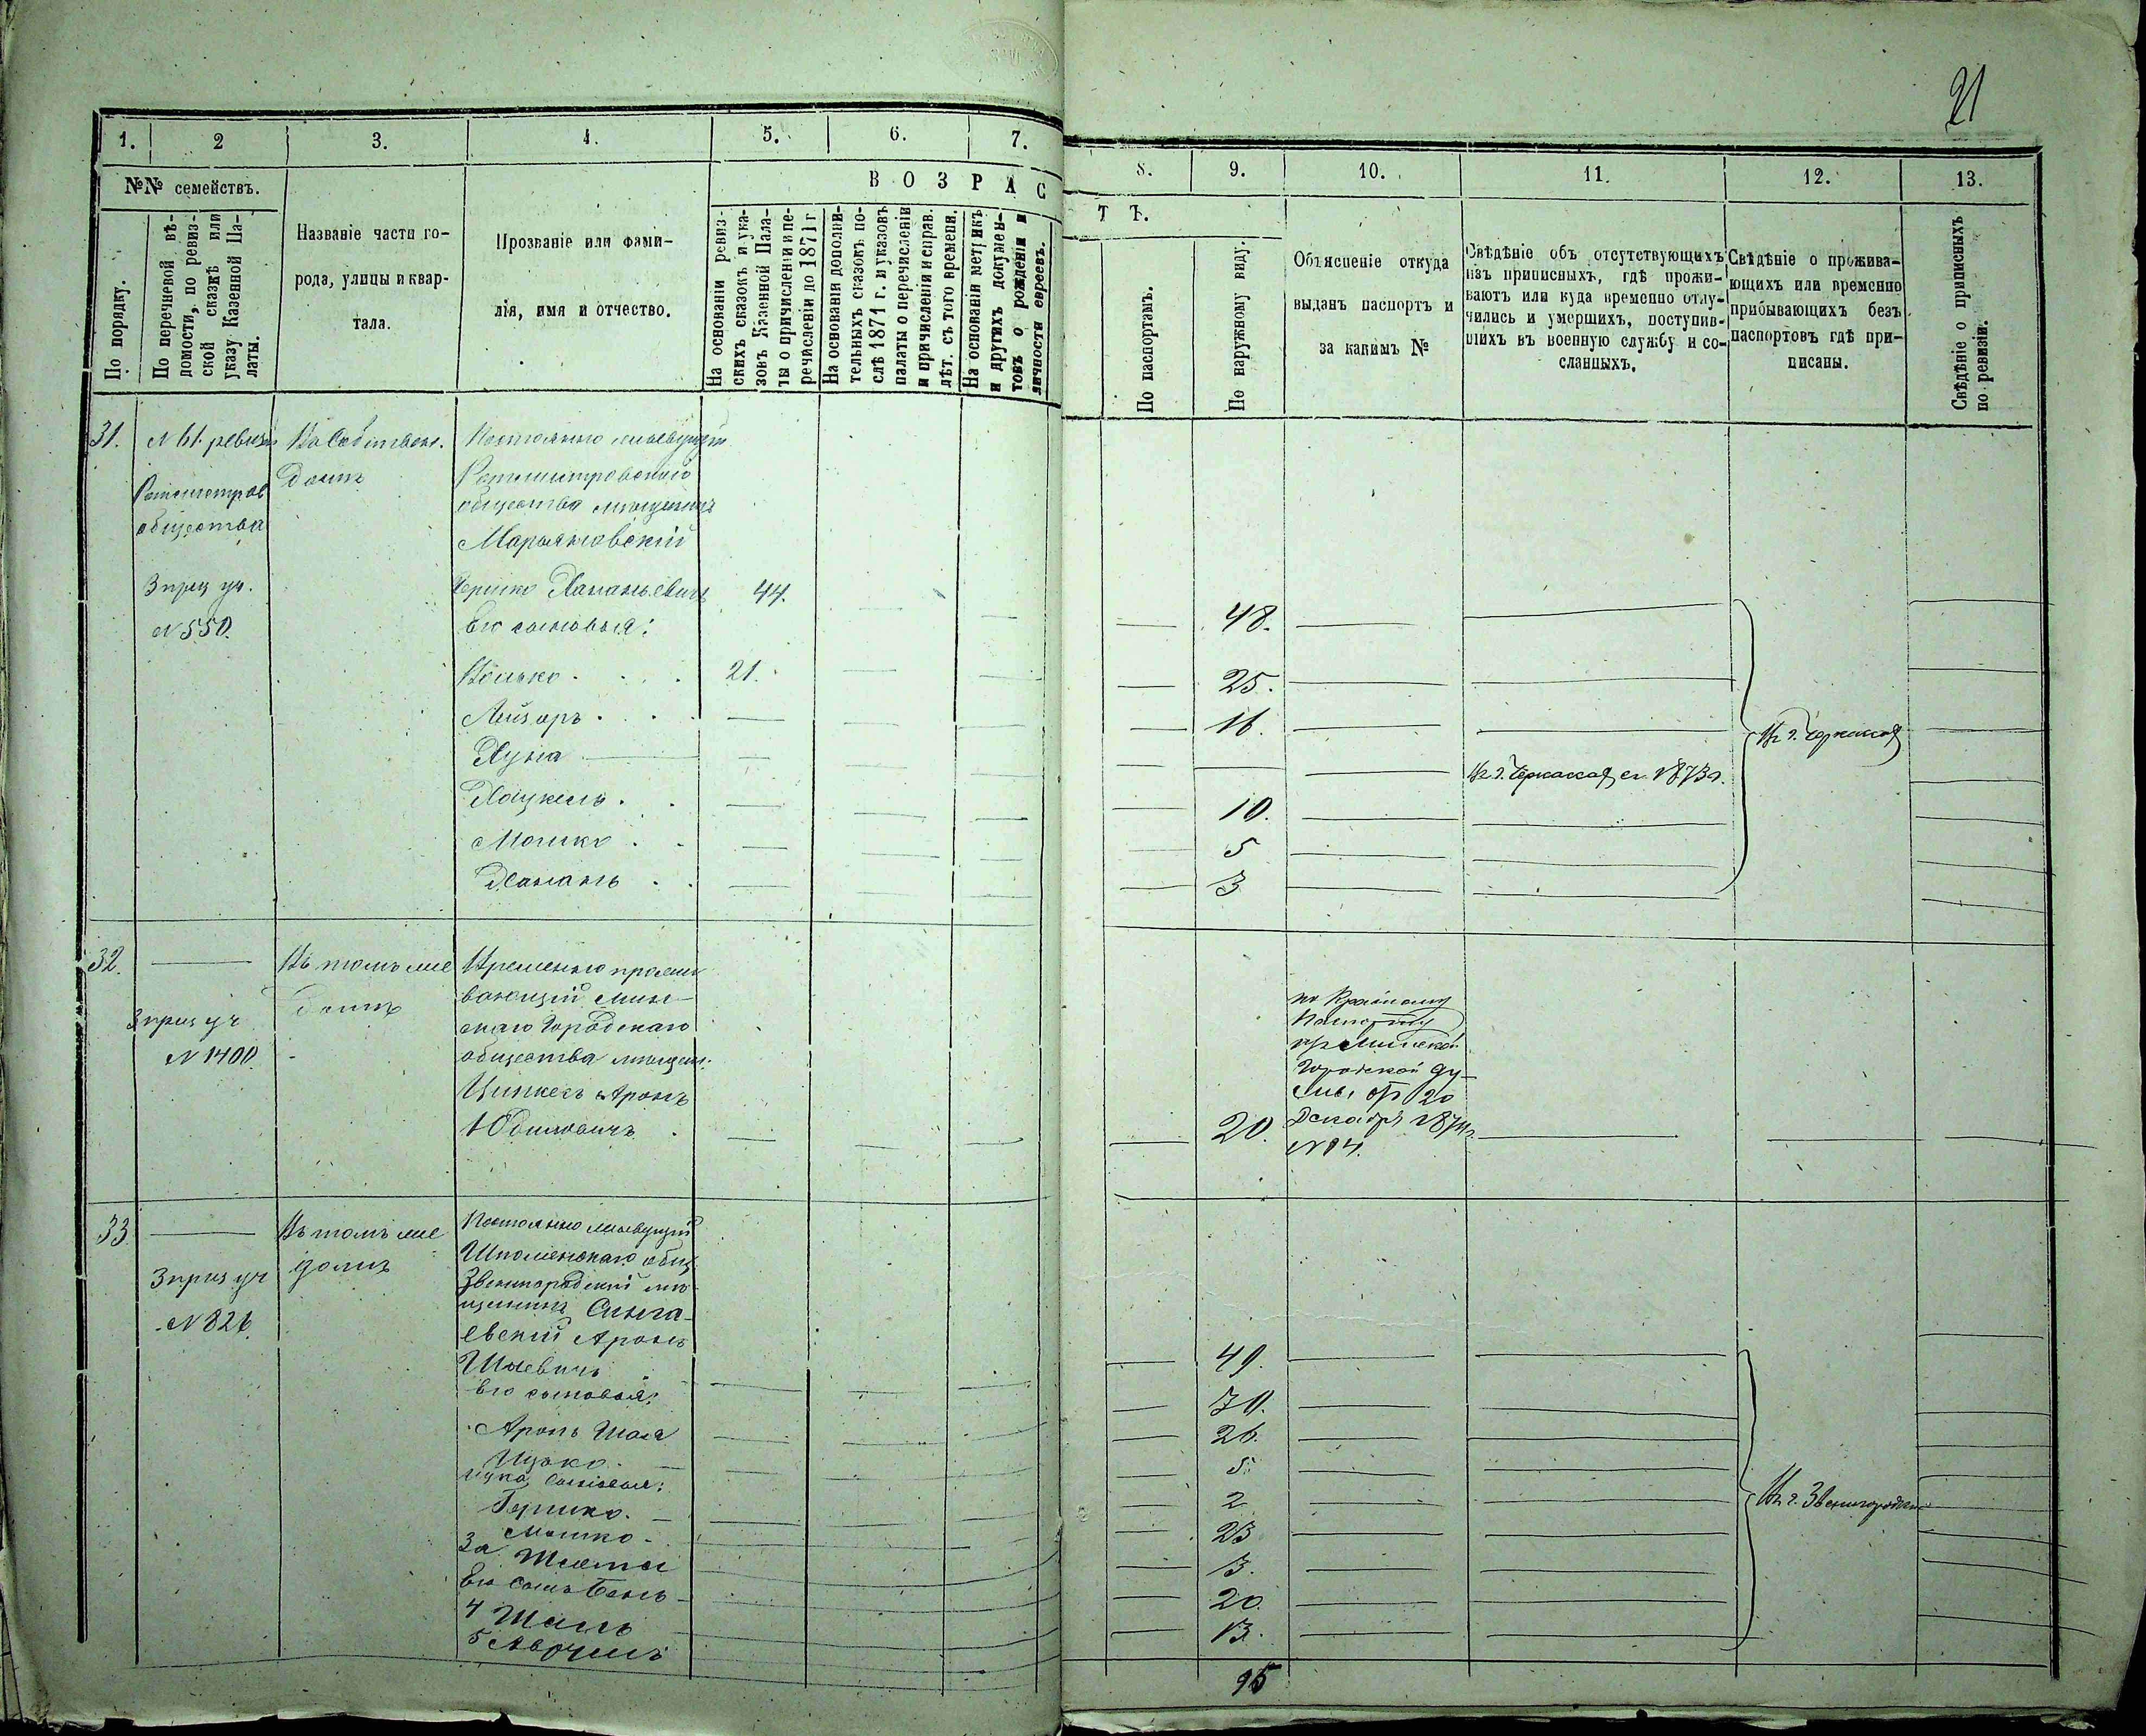 21
1. 2 3. 4. 5. 6. 7.
8. 9. 10. 11. 12. 13.
№№ семействъ.
В О З Р А С
Т Ъ.
По порядку.
По перечневой вѣ-
домости, по ревиз-
ской сказкѣ или
указу Казенной Па-
латы.
Названіе части го-
рода, улицы и квар-
тала.
Прозваніе или фами-
лія, имя и отчество.
На основаніи ревиз-
скихъ сказокъ и ука-
зовъ Казенной Пала-
ты о причисленіи и пе-
речисленіи до 1871 г
На основаніи дополни-
тельныхъ сказокъ по-
слѣ 1871 г. и указовъ
палаты о перечисленіи
и причисленіи и справ.
лѣт. съ того времени.
На основаніи метрикъ
и другихъ докумен-
товъ о рожденіи и
личности евреевъ.
По паспортамъ.
По наружному виду.
Объясненіе откуда
выданъ паспортъ и
за какимъ №
Свѣдѣніе объ отсутствующихъ
изъ приписныхъ, гдѣ прожи-
ваютъ или куда временно отлу-
чились и умершихъ, поступив-
шихъ въ военную службу и со-
сланныхъ.
Свѣдѣніе о прожива-
ющихъ или временно
прибывающихъ безъ
паспортовъ гдѣ при-
писаны.
Свѣдѣніе о приписныхъ
по ревизіи.
31.
N 61 ревизс
общества
3 приз уч.
N 550.
Въ собствен.
домѣ
Постоянно живущій
Ротмистровскаго
общества мѣщанинъ
Марьяновскій
Гершко Хананьевичъ 44. 48.
Его сыновья:
Волько 21. 25.
Лейзоръ 16.
Хуна Въ г. Черкассахъ съ 1873 г.
Хацкель 10.
Мошко 5
Ханань 3
Въ г. Черкассахъ
32.
3 приз уч
N 1400.
Въ томъ же
домѣ
Временно прожи
вающій Мин-
скаго Городскаго
общества мѣщан.
Аронъ
20.
по
Паспорту
изъ Минской
Городской Ду-
мы, отъ 20
Декабря 1874 г.
33.
3 приз уч
N 826.
Въ томъ же
домѣ
Постоянно живущій
Шполянскаго общ
Звенигородскій мѣ-
щанинъ
евскій Аронъ
49.
Его сыновья:
30.
Ицько 26.
Ицка сыновья:
Гершко. 5
Мошко 2
23
Его сынъ Бень 3.
4 20.
5 13.
Въ г. Звенигородкѣ
95